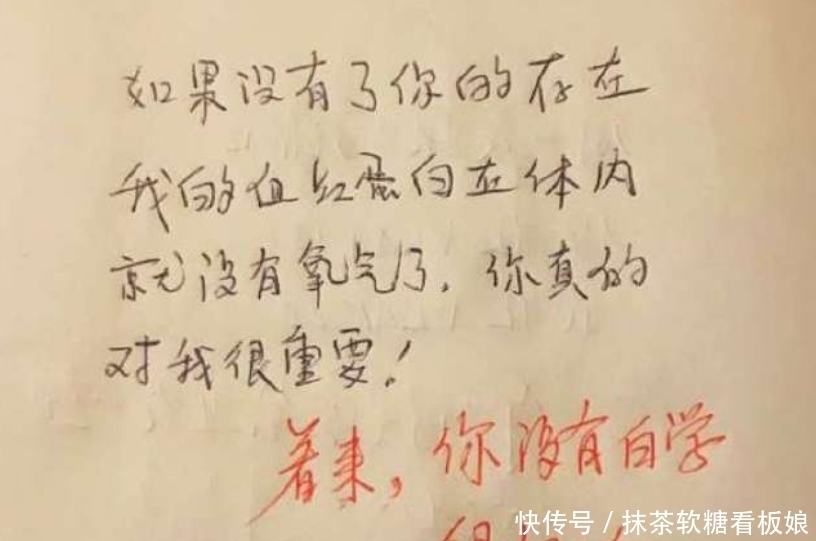 如果没有了你的存在
我的血红蛋白在体内
就没有氧气了，你真的
对我很重要！
看来，你没有白学
快传号／抹茶软糖看板娘